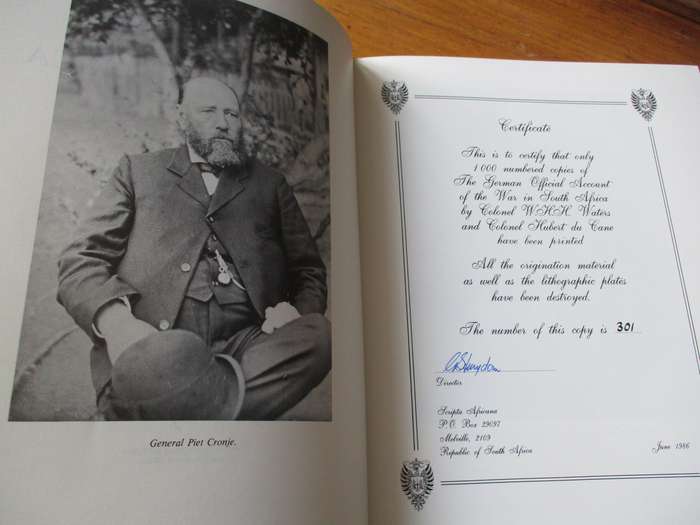 General Piet Cronje.
Certificate
This is to certify that only
1 000 numbered copies of
The German Official Account
of the War in South Africa
by Colonel W.H.H. Waters
and Colonel Hubert du Cane
have been printed
All the origination material
as well as the lithographic plates
have been destroyed.
The number of this copy is 301
Director
Scripta Africana
P.O. Box 29697
Melville, 2109
Republic of South Africa
June 1986